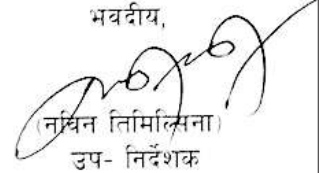 भवदीय,
(नविन तिमिल्सिना)
उप- निर्देशक